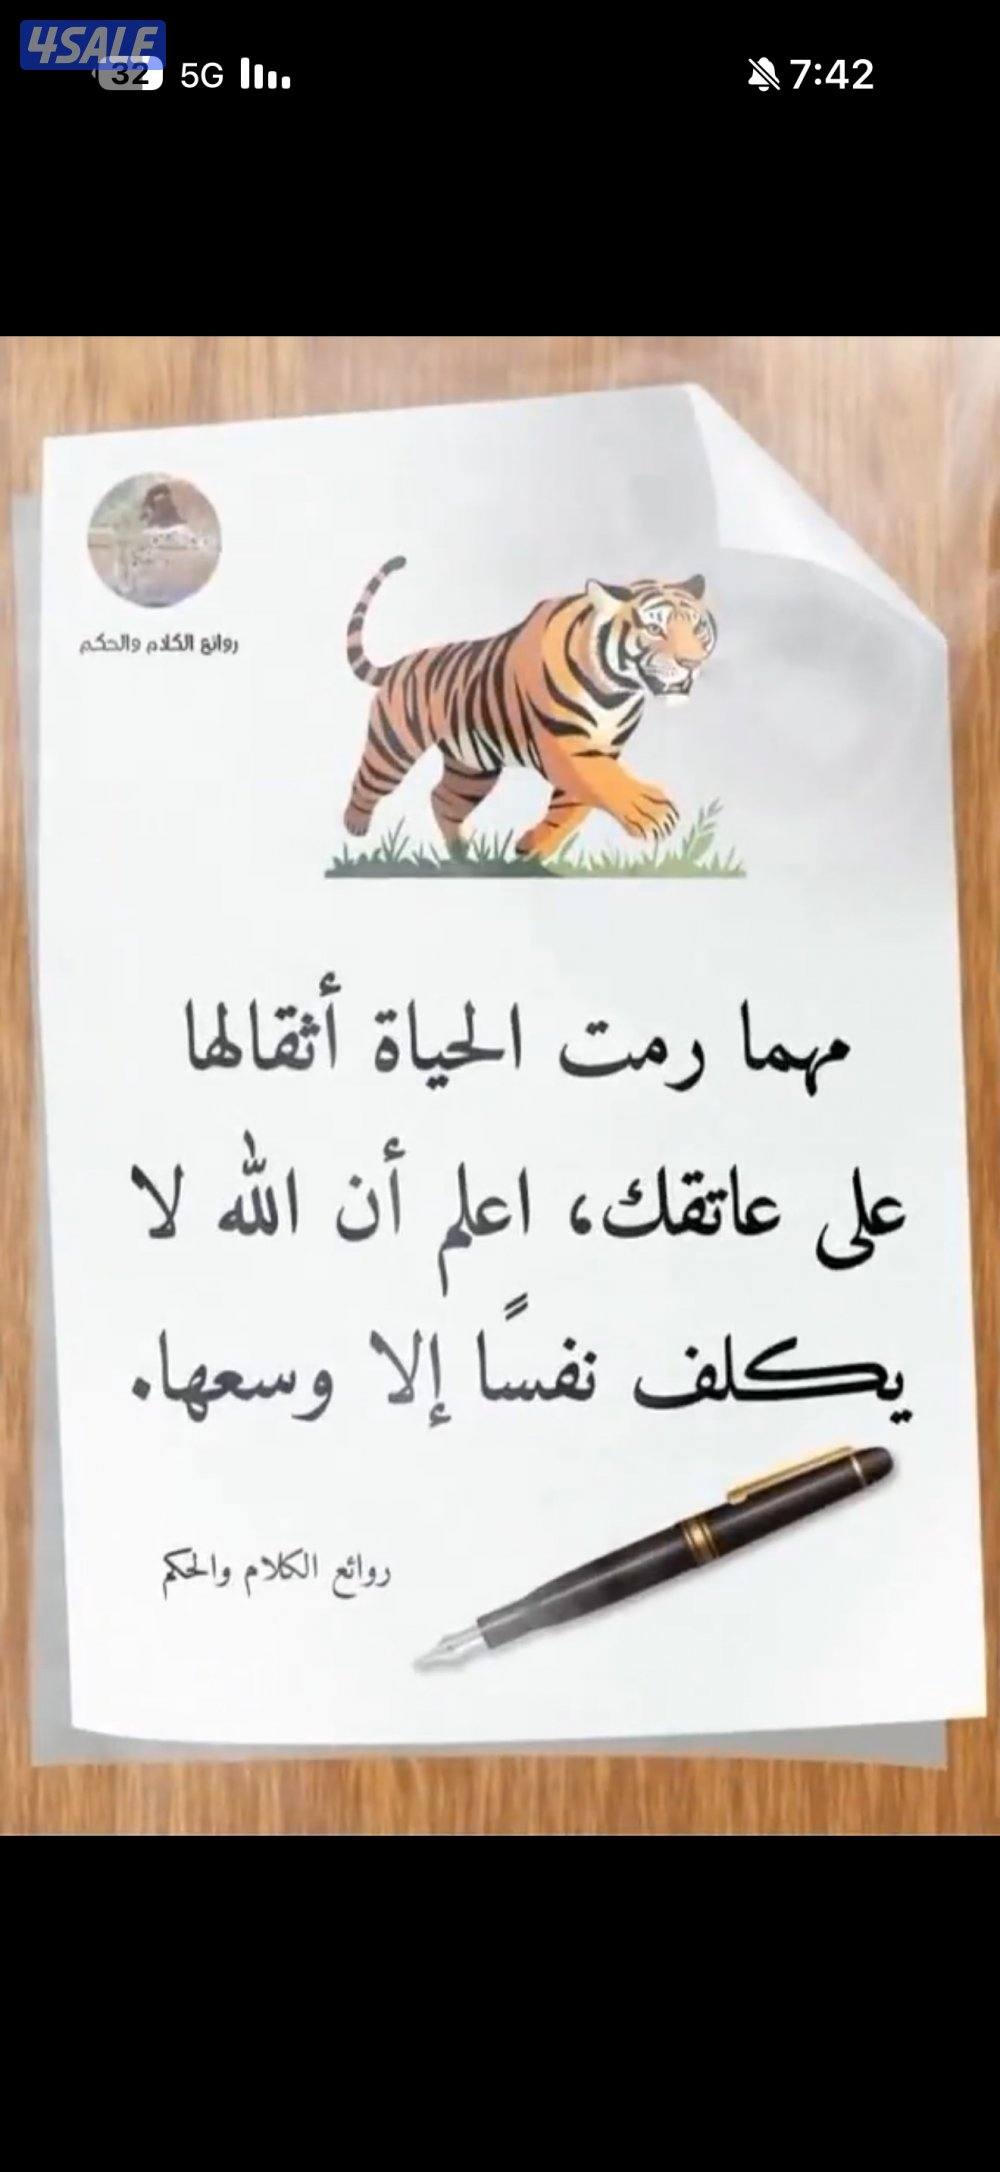 4SALE
32 5G 7:42
روائع الكلام والحكم
مهما رمت الحياة أثقالها
على عاتقك، اعلم أن الله لا
يكلف نفسًا إلا وسعها.
روائع الكلام والحكم